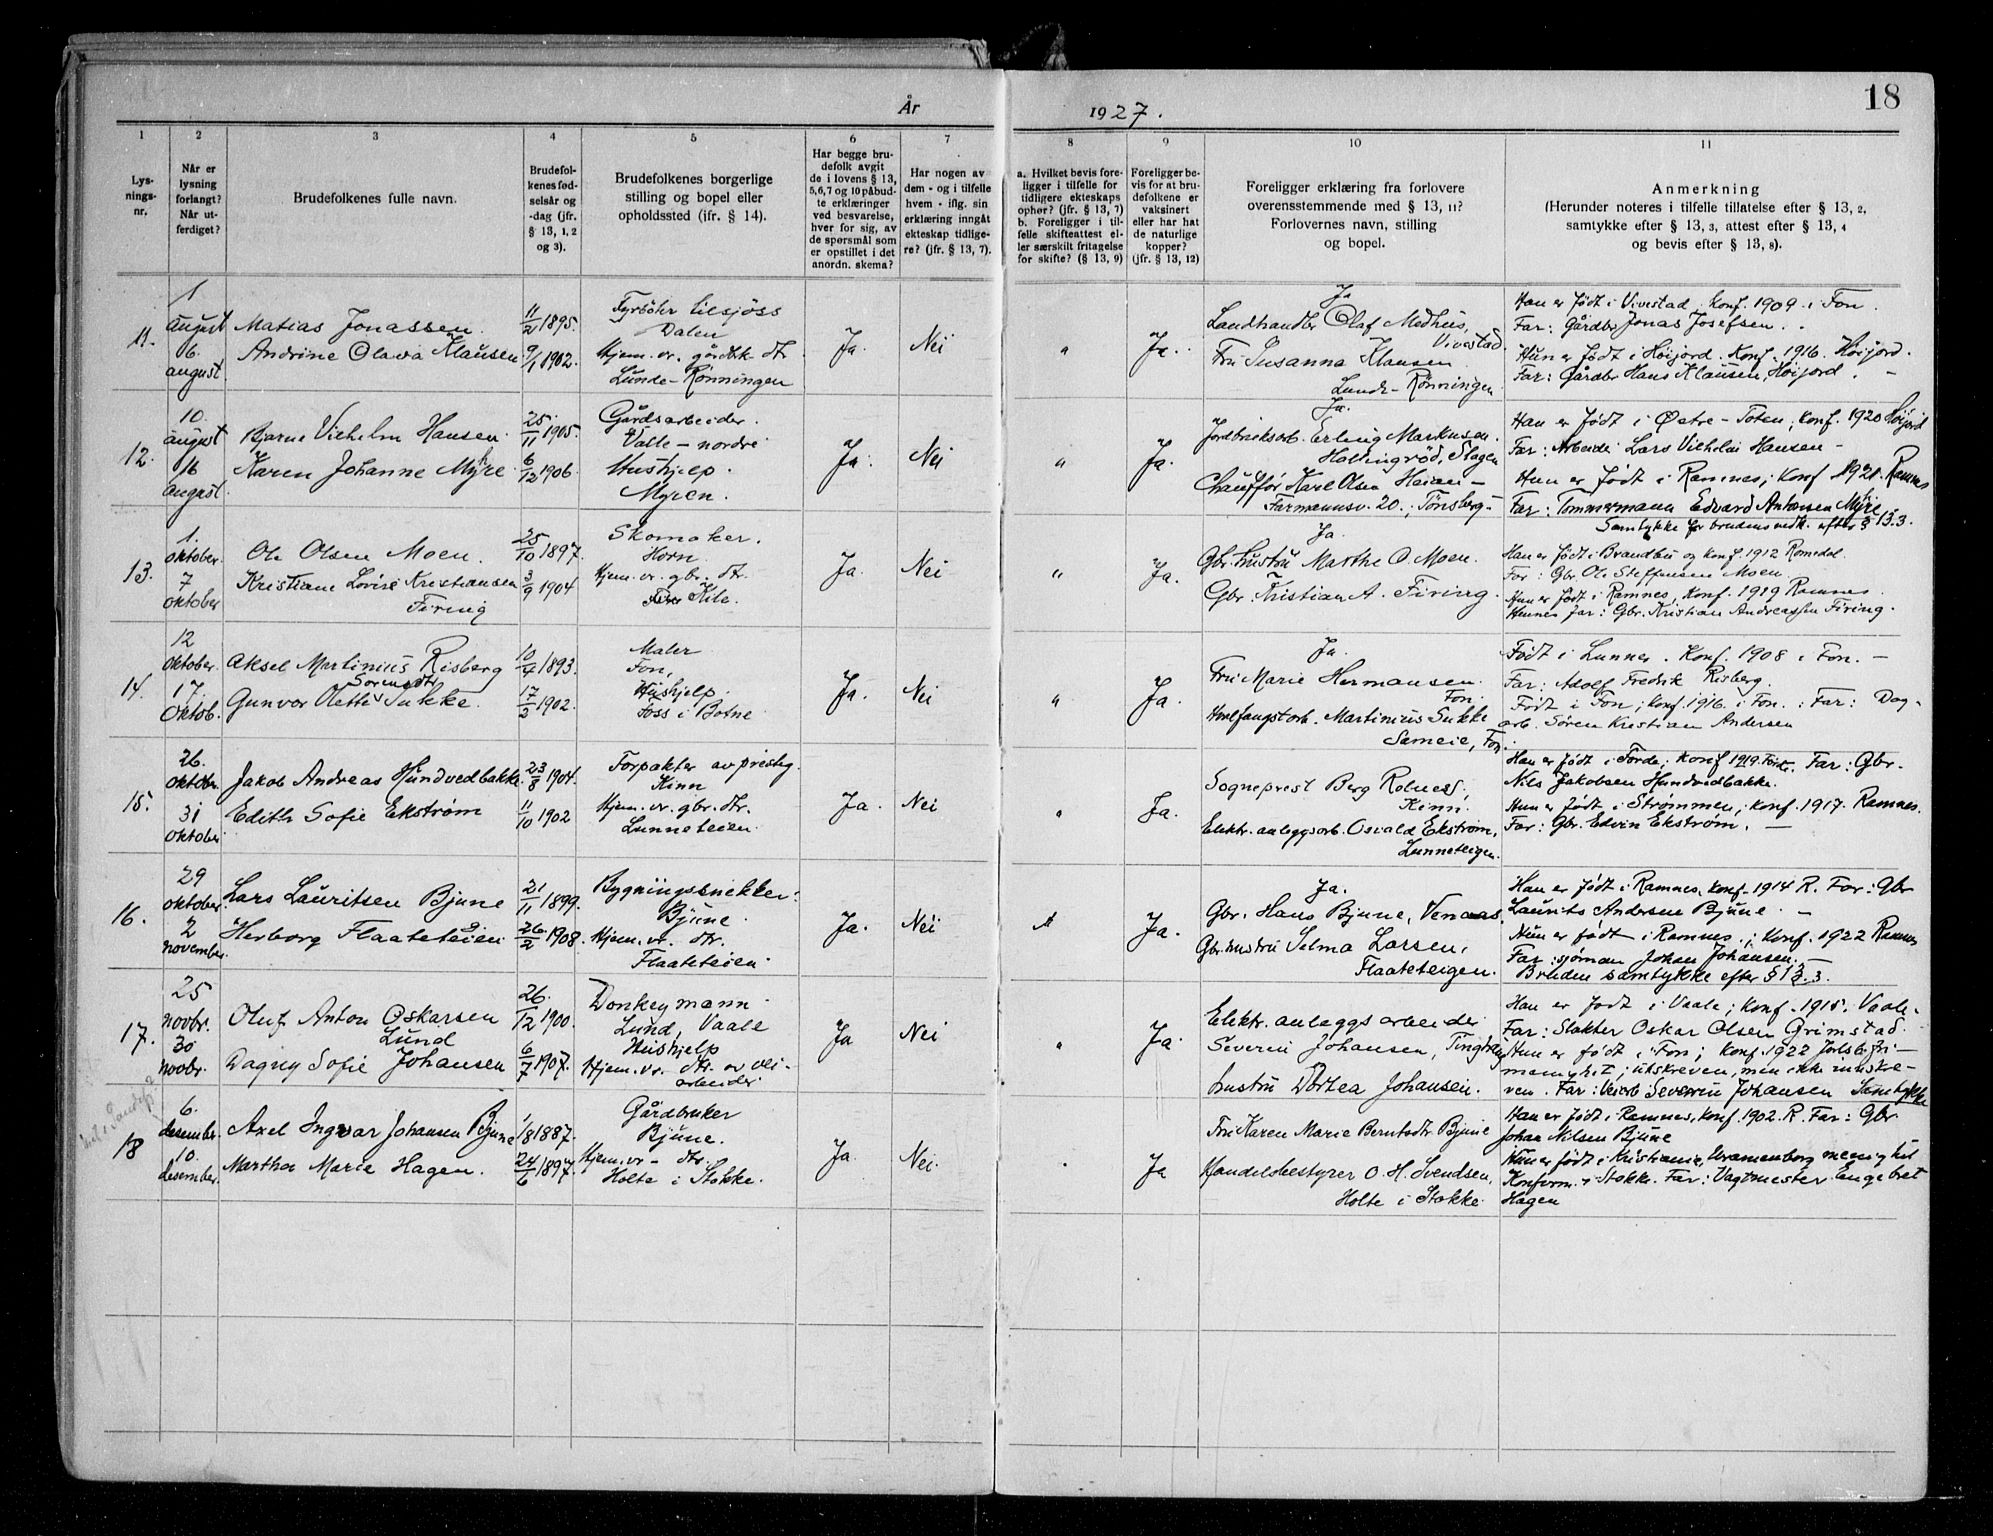 År 1927.
18
1 2 3 4 5 6 7 8 9 10 11
Lys-
nings-
nr.
Når er
lysning
forlangt?
Når ut-
ferdiget?
Brudefolkenes fulle navn.
Brudefol-
kenes fød-
selsår og
-dag (jfr.
§ 13, 1, 2
og 3).
Brudefolkenes borgerlige
stilling og bopel eller
opholdssted (ifr. § 14).
Har begge bru-
defolk avgit
de i lovens § 13,
5,6,7 og 10 påbud-
te erklæringer
ved besvarelse,
hver for sig, av
de spørsmål som
er opstillet i det
anordn. skema?
Har nogen av
dem - og i tilfelle
hvem - iflg. sin
erklæring inngått
ekteskap tidlige-
re? (jfr. § 13, 7).
a. Hvilket bevis fore-
ligger i tilfelle for
tidligere ekteskaps
ophør? (jfr. § 13, 7)
b. Foreligger i til-
felle skifteattest el-
ler særskilt fritagelse
for skifte? (§ 13, 9)
Foreligger be-
vis for at bru-
defolkene er
vaksinert
eller har hat
de naturlige
kopper?
(jfr. § 13, 12)
Foreligger erklæring fra forlovere
overensstemmende med § 13, 11?
Forlovernes navn, stilling
og bopel.
Anmerkning
(Herunder noteres i tilfelle tillatelse efter § 13, 2,
samtykke efter § 13, 3, attest efter § 13, 4
og bevis efter § 13, 8).
11.
1
august
6.
august
Matias Jonassen.
Andrine Olava Klausen
11/2 1895.
9/1 1902.
Fyrbøter tilsjøss
Dalen
Hjem. vr. gårdbr. dtr
Lunde-Rønningen
Ja.
Nei
"
Ja.
Ja
Landhandler Olaf Medhus,
Vivestad
Fru Susanna Klausen
Lunde-Rønningen
Han er født i Vivestad. konf. 1909 i Fon.
Far: Gårdbr Jonas Josefsen.
Hun er født i Høijord. Konf. 1916. Høijord.
Far: Gårdbr Hans Klausen, Høijord.
12.
10.
august
16
august.
Bjarne Vilhelm Hansen.
Karen Johanne Myhre
25/11 1905.
6/12 1906
Gårdsarbeider.
Valle-nordre
Hushjelp.
Myren.
Ja.
Nei
"
Ja.
Ja.
Jordbruksarb. Erling Markussen.
Hallingrød, Slagen
Chauffør Karl Olsen Heian-
Farmannsv. 20., Tønsberg-
Han er født i Østre-Toten, konf. 1920 Høijord
Far: Arbeider Lars Vilhelm Hansen-
Hun er født i Ramnes; konf 1921. Ramnes
Far: Tømmermann Edvard Antonsen Myhre
Samtykke for brudens vedk. efter § 13.3.
13.
1.
oktober.
7
oktober
Ole Olsen Moen.
Kristiane Lovise Kristiansen
Firing
25/10 1897.
3/9 1904
Skomaker.
Horn
Hjem. vr. gbr. dtr.
Kile.
Ja
Nei
"
Ja.
Ja.
Gbr. hustru Marthe O. Moen.
Gbr Kristian A. Firing.
Han er født i Brandbu og konf. 1912 Romedal.
Far: Gbr. Ole Steffensen Moen.
Hun er født i Ramnes, konf. 1919 Ramnes.
Hennes far: Gbr. Kristian Andreassen Firing.
14.
12
oktober.
17.
oktob.
Aksel Martinius Risberg
Sørensdtr
Gunvor Olette Sukke.
10/4 1893.
17/2 1902.
Maler
Fon,
Hushjelp.
Foss i Botne
Ja.
Nei
"
Ja.
Ja.
Fru Marie Hermansen.
Fon
Hvalfangstarb. Martinius Sukke
Sameie, Fon.
Født i Lunner. Konf. 1908 i Fon. -
Far: Adolf Fredrik Risberg.
Født i Fon; konf. 1916. i Fon. : Far: Dag-
arb. Søren Kristian Andersen
15.
26.
oktober.
31
oktober
Jakob Andreas Hundvedbakke.
Edith Sofie Ekstrøm
23/8 1904.
11/10 1902
Forpakter av presteg.
Kinn
Hjem. vr. gbr. dtr.
Lunneteien.
Ja.
Nei
"
Ja.
Sogneprest Berg Rolness,
Kinn.
Elektr. anleggsarb. Osvald Ekstrøm,
Lunneteigen.
Han er født i Førde; konf 1919. Førde. Far: Gbr.
Nils Jakobsen Hundvedbakke.
Hun er født i Strømmen; konf. 1917. Ramnes.
Far: Gbr. Edvin Ekstrøm. -
16.
29
oktober.
2
november.
Lars Lauritsen Bjune
Herborg Flaateteien
21/11 1899.
26/2 1908.
Bygningssnekker.
Bjune.
Hjem. vr. dtr.
Flaateteien.
Ja.
Nei
"
Ja.
Ja.
Gbr. Hans Bjune, Venaas.
Gbr. hustru Selma Larsen,
Flaateteigen.
Han er født i Ramnes, konf. 1914 R. Far: Gbr
Laurits Andersen Bjune. -
Hun er født i Ramnes.; Konf. 1922 Ramnes
Far: sjøman Johan Johansen.
Bruden samtykke efter § 13.3.
17.
25
novbr.
30
novbr.
Oluf Anton Oskarsen
Lund
Dagny Sofie Johansen
26./12 1900.
6/7 1907.
Donkeymann.
Lund, Vaale
Hushjelp
Hjem. vr. dtr. av vei-
arbeider
Ja
Nei
"
Ja.
Elektr. anleggsarbeider
Severin Johansen,
hustru Dortea Johansen.
Han er født i Vaale; konf. 1915. Vaale.
Far: Slakter Oskar Olsen Grimstad.
Hun er født i Fon; konf. 1922 Jarlsb. fri-
menighet; utskreven, men ikke innskre-
ven. Far: Veiarb. Severin Johansen Samtykke
18
6.
desember.
10.
desember.
Axel Ingvar Johansen Bjune
Martha Marie Hagen.
1/8 1887.
24/6 1897.
Gårdbruker
Bjune.
Hjem. vr - dtr.
Holte i Stokke.
Ja.
Nei.
Ja
Fru Karen Marie Berntsdtr Bjune
Handelsbestyrer O. H. Svendsen,
Holte i Stokke.
Han er født i Ramnes, konf. 1902. R. Far: Gbr
Johan Nilsen Bjune
Hun er født i Kristiania, Uranienborg menighet
Konform. i Stokke. Far: Vagtmester Engebret
Hagen